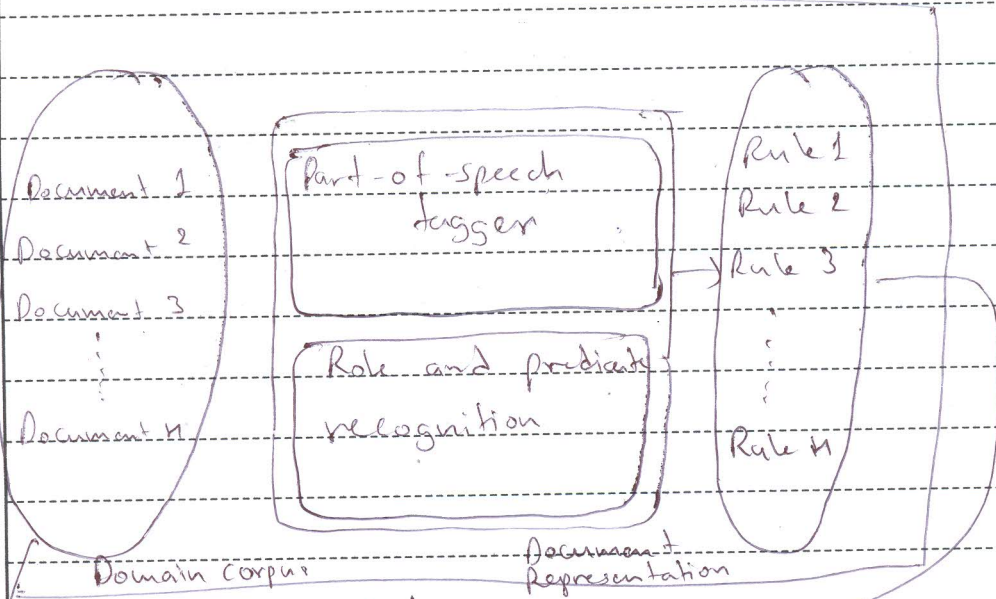 Document 1
Document 2
Document 3
Document n
Domain corpus
Part-of-speech
tagger
Role and predicate
recognition
Document
Representation
Rule 1
Rule 2
Rule 3
Rule n